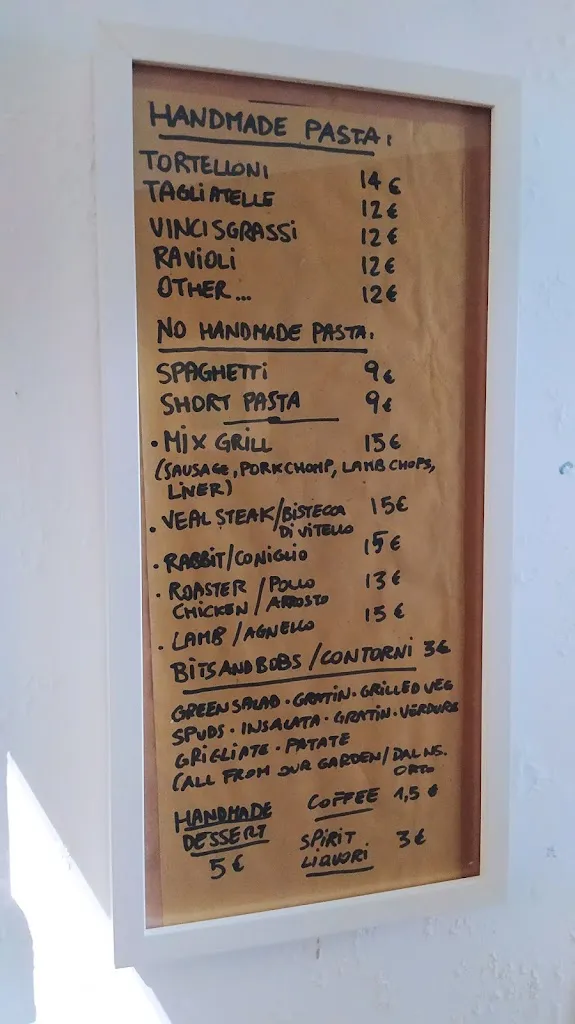 HANDMADE PASTA:
TORTELLONI 14 €
TAGLIATELLE 12 €
VINCISGRASSI 12 €
RAVIOLI 12 €
OTHER... 12 €
NO HANDMADE PASTA.
SPAGHETTI 9 €
SHORT PASTA 9 €
• MIX GRILL 15 €
(SAUSAGE, PORKCHOMP, LAMB CHOPS,
LINER)
• VEAL STEAK/BISTECCA 15 €
DI VITELLO
• RABBIT/CONIGLIO 15 €
• ROASTER / POLLO 13 €
CHICKEN / ARROSTO
• LAMB / AGNELLO 15 €
BITSANDBOBS / CONTORNI 3 €
GREEN SALAD • GRATIN • GRILLED VEG
SPUDS • INSALATA • GRATIN • VERDURE
GRIGLIATE • PATATE
(ALL FROM OUR GARDEN / DAL NS.
ORTO
HANDMADE
DESSERT
5 €
COFFEE 1,5 €
SPIRIT 3 €
LIQUORI